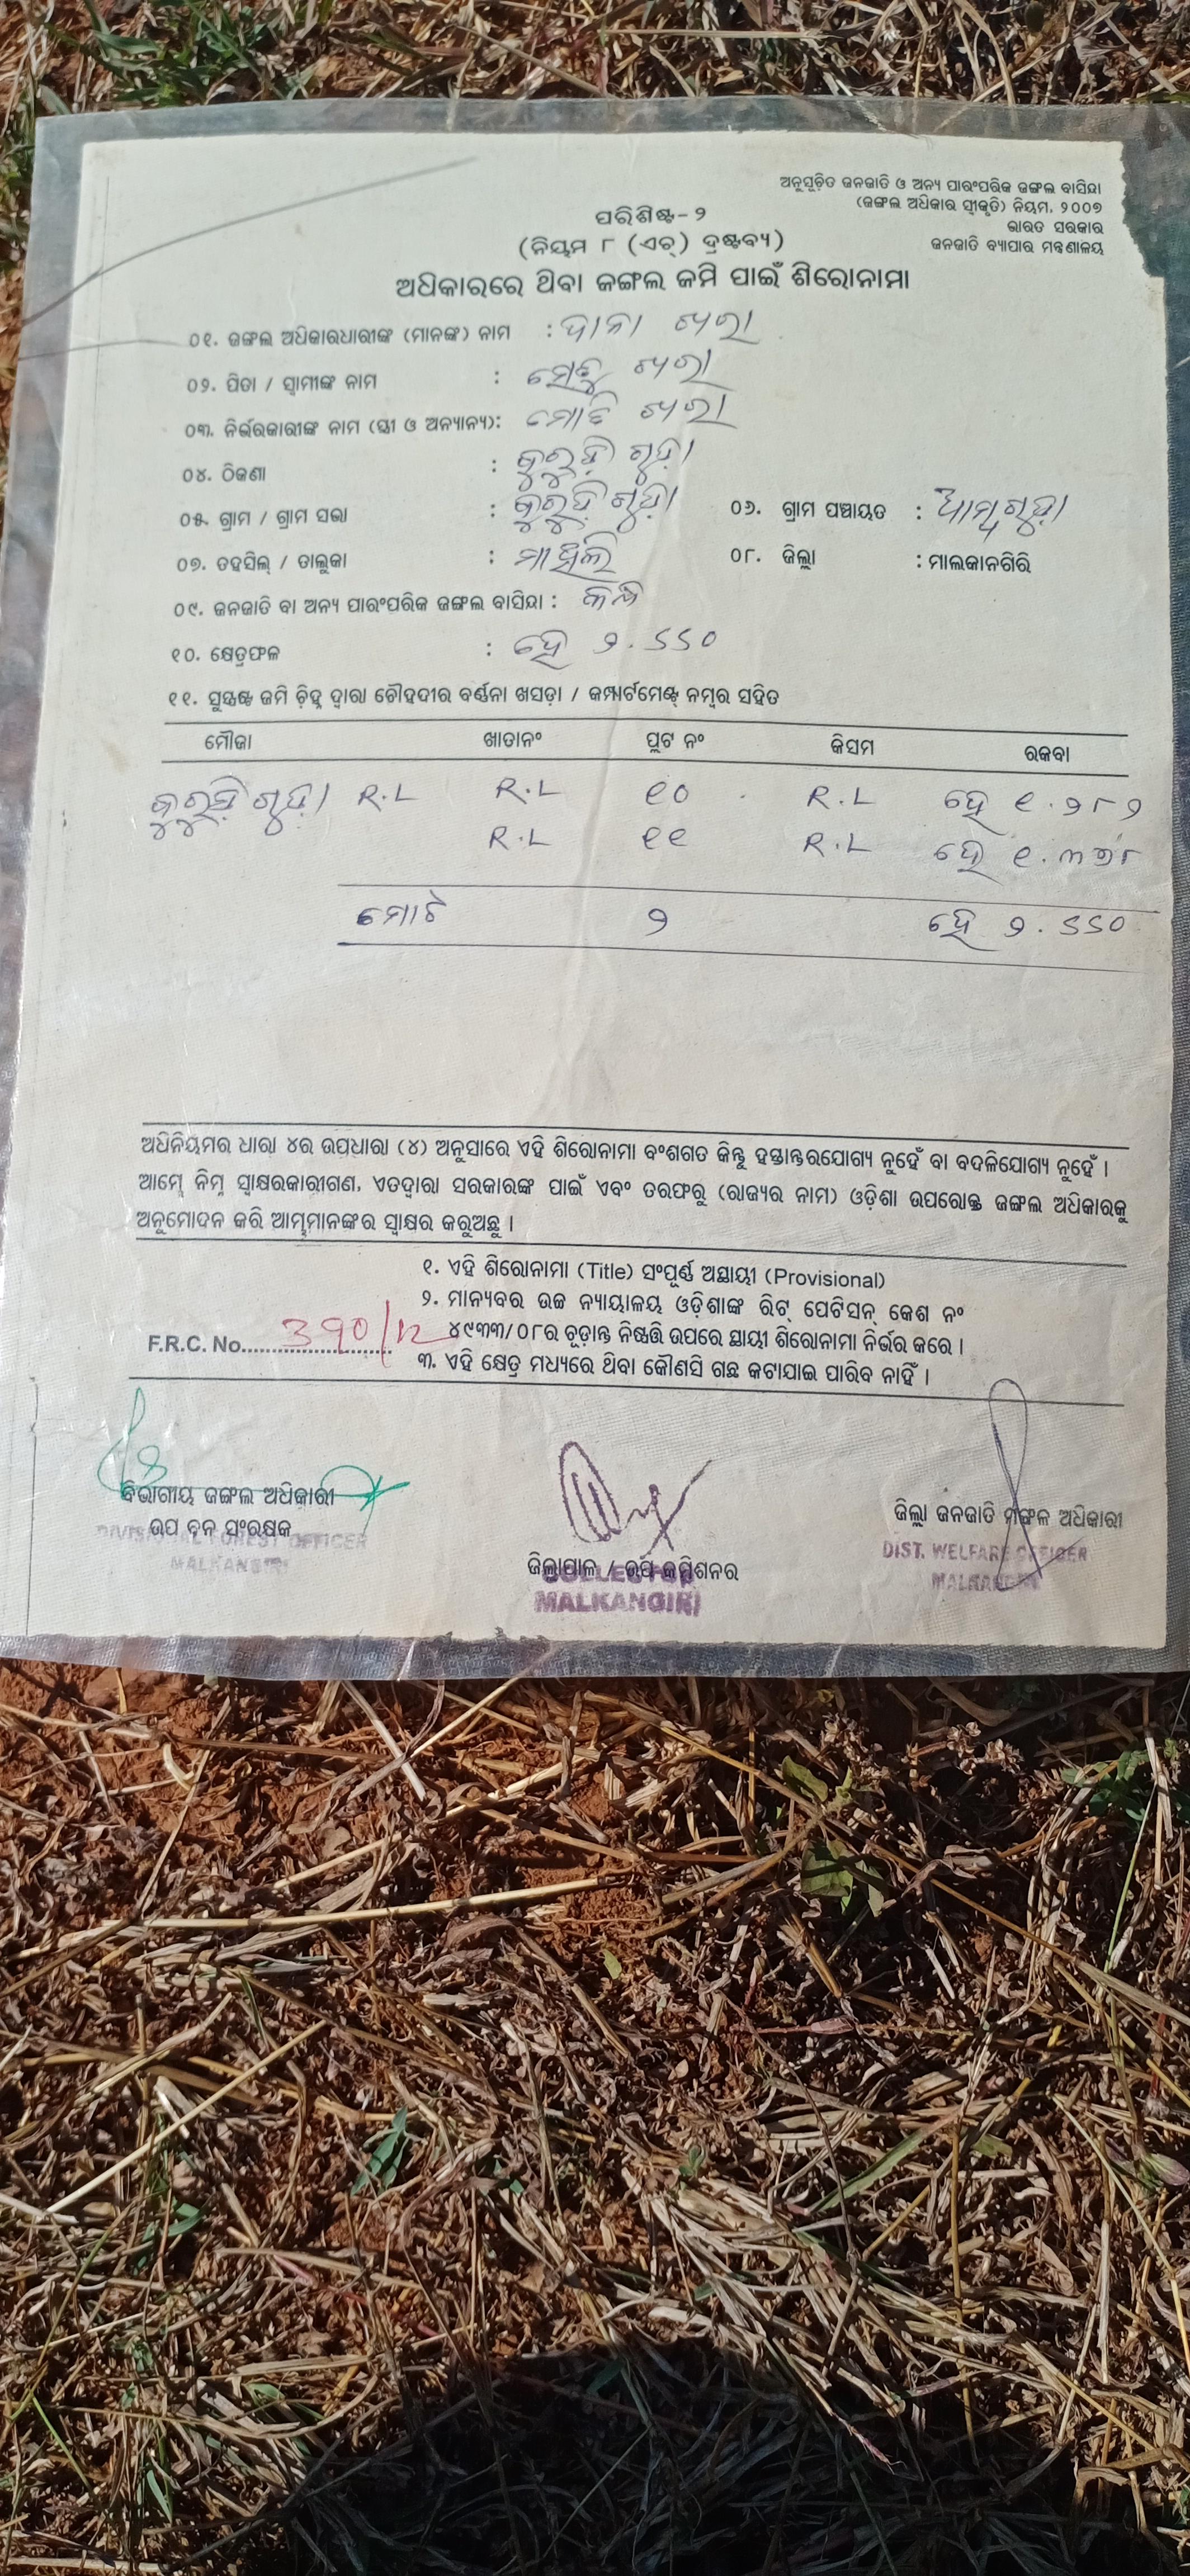 ଅନୁସୂଚିତ ଜନଜାତି ଓ ଅନ୍ୟ ପାରଂପରିକ ଜଙ୍ଗଲ ବାସିନ୍ଦା
(ଜଙ୍ଗଲ ଅଧିକାର ସ୍ୱୀକୃତି) ନିୟମ, ୨୦୦୭
ଭାରତ ସରକାର
ଜନଜାତି ବ୍ୟାପାର ମନ୍ତ୍ରଣାଳୟ
ପରିଶିଷ୍ଟ-୨
(ନିୟମ ୮ (ଏଚ୍) ଦ୍ରଷ୍ଟବ୍ୟ)
ଅଧିକାରରେ ଥିବା ଜଙ୍ଗଲ ଜମି ପାଇଁ ଶିରୋନାମା
୦୧. ଜଙ୍ଗଲ ଅଧିକାରଧାରୀଙ୍କ (ମାନଙ୍କ) ନାମ : ଦାନା ଖରା
୦୨. ପିତା / ସ୍ୱାମୀଙ୍କ ନାମ : ଖରା
୦୩. ନିର୍ଭରକାରୀଙ୍କ ନାମ (ସ୍ତ୍ରୀ ଓ ଅନ୍ୟାନ୍ୟ): ଖରା
୦୪. ଠିକଣା :
୦୫. ଗ୍ରାମ / ଗ୍ରାମ ସଭା : ୦୬. ଗ୍ରାମ ପଞ୍ଚାୟତ : ଆମ୍ବଗୁଡ଼ା
୦୭. ତହସିଲ୍ / ତାଲୁକା : ମାଥିଲି ୦୮. ଜିଲ୍ଲା : ମାଲକାନଗିରି
୦୯. ଜନଜାତି ବା ଅନ୍ୟ ପାରଂପରିକ ଜଙ୍ଗଲ ବାସିନ୍ଦା :
୧୦. କ୍ଷେତ୍ରଫଳ : ହେ ୨.୬୬୦
୧୧. ସୁସ୍ପଷ୍ଟ ଜମି ଚିହ୍ନ ଦ୍ୱାରା ଚୌହଦୀର ବର୍ଣ୍ଣନା ଖସଡ଼ା / କମ୍ପାର୍ଟମେଣ୍ଟ ନମ୍ବର ସହିତ
ମୌଜା ଖାତାନଂ ପ୍ଲଟ ନଂ କିସମ ରକବା
R.L R.L ୧୦ R.L ହେ ୧.୨୮୨
R.L ୧୧ R.L ହେ ୧.୩୭୮
ମୋଟ ୨ ହେ ୨.୬୬୦
ଅଧିନିୟମର ଧାରା ୪ର ଉପଧାରା (୪) ଅନୁସାରେ ଏହି ଶିରୋନାମା ବଂଶଗତ କିନ୍ତୁ ହସ୍ତାନ୍ତରଯୋଗ୍ୟ ନୁହେଁ ବା ବଦଳିଯୋଗ୍ୟ ନୁହେଁ ।
ଆମ୍ଭେ ନିମ୍ନ ସ୍ୱାକ୍ଷରକାରୀଗଣ, ଏତଦ୍ୱାରା ସରକାରଙ୍କ ପାଇଁ ଏବଂ ତରଫରୁ (ରାଜ୍ୟର ନାମ) ଓଡ଼ିଶା ଉପରୋକ୍ତ ଜଙ୍ଗଲ ଅଧିକାରକୁ
ଅନୁମୋଦନ କରି ଆମ୍ଭମାନଙ୍କର ସ୍ୱାକ୍ଷର କରୁଅଛୁ ।
୧. ଏହି ଶିରୋନାମା (Title) ସଂପୂର୍ଣ୍ଣ ଅସ୍ଥାୟୀ (Provisional)
୨. ମାନ୍ୟବର ଉଚ୍ଚ ନ୍ୟାୟାଳୟ ଓଡ଼ିଶାଙ୍କ ରିଟ୍ ପେଟିସନ୍ କେଶ ନଂ
୪୯୩୩/୦୮ର ଚୂଡ଼ାନ୍ତ ନିଷ୍ପତ୍ତି ଉପରେ ସ୍ଥାୟୀ ଶିରୋନାମା ନିର୍ଭର କରେ ।
F.R.C. No. 390/12
୩. ଏହି କ୍ଷେତ୍ର ମଧ୍ୟରେ ଥିବା କୌଣସି ଗଛ କଟାଯାଇ ପାରିବ ନାହିଁ ।
ବିଭାଗୀୟ ଜଙ୍ଗଲ ଅଧିକାରୀ
ଉପ ବନ ସଂରକ୍ଷକ
DIVISIONAL FOREST OFFICER
MALKANGIRI
ଜିଲ୍ଲାପାଳ / ଉପ କମିଶନର
COLLECTOR
MALKANGIRI
ଜିଲ୍ଲା ଜନଜାତି ମଙ୍ଗଳ ଅଧିକାରୀ
DIST. WELFARE OFFICER
MALKANGIRI